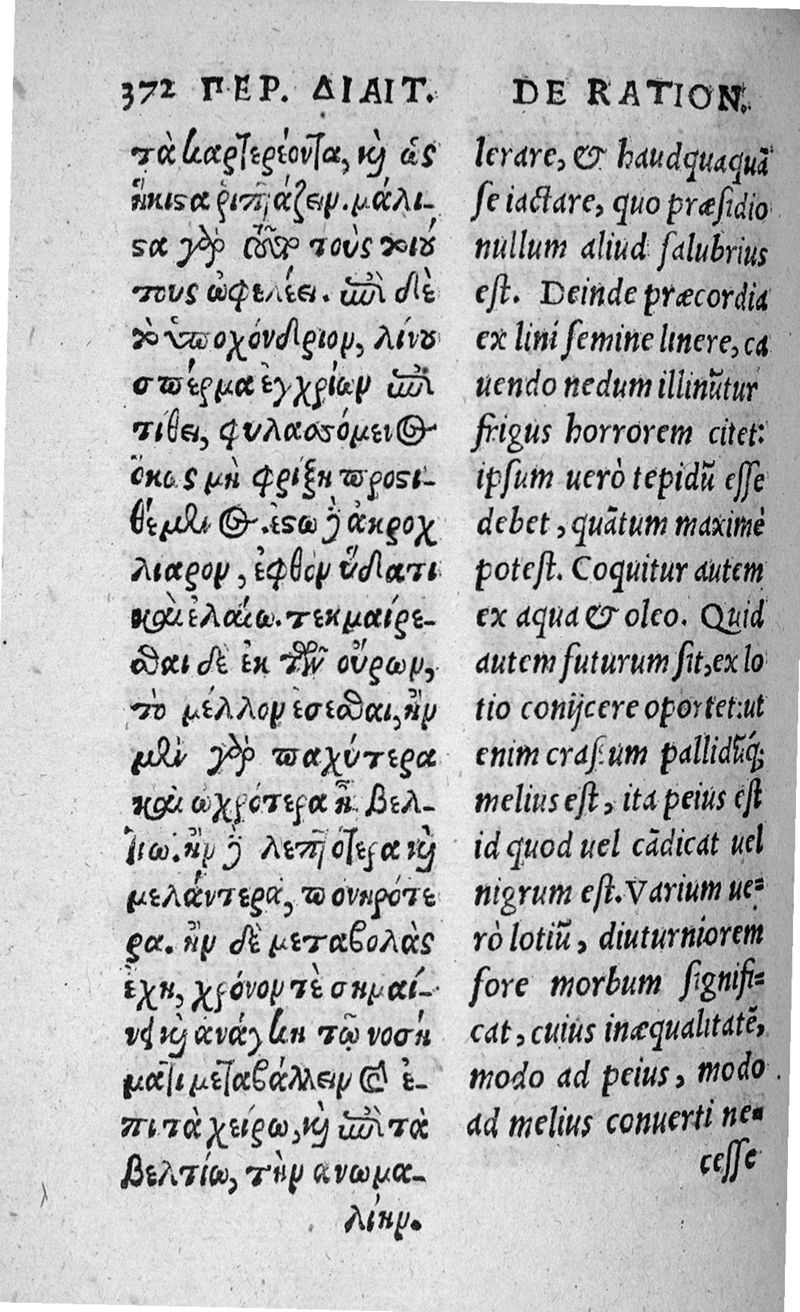 372 ΠΕΡ. ΔΙΑΙΤ.
τὰ καρτερέοντα, καὶ ὡς
ἥκιστα ῥιπτάζειν. μάλι-
στα γὰρ οὗτος τοὺς τοιού
τους ὠφελέει. ἐπὶ δὲ
τὸ ὑποχόνδριον, λίνου
σπέρμα ἐγχρίων ἐπι
τίθει, φυλασσόμενος
ὅκως μὴ φρίξῃ προστι-
θέμενος. ἔστω δὲ ἀκροχ
λίαρον, ἑφθὸν ὕδατι
καὶ ἐλαίω. τεκμαίρε-
σθαι δὲ ἐκ τῶν οὔρων,
τὸ μέλλον ἔσεσθαι, ἢν
μὲν γὰρ παχύτερα
καὶ ὠχρότερα ᾖ βελ-
τίω. ἢν δὲ λεπτότερα καὶ
μελάντερα, πονηρότε
ρα. ἢν δὲ μεταβολὰς
ἔχῃ, χρόνον τὲ σημαί-
νει καὶ ἀνάγκη τῷ νοσή
ματι μεταβάλλειν καὶ ἐ-
πὶ τὰ χείρω, καὶ ἐπὶ τὰ
βελτίω, τὴν ἀνωμα-
λίην.
DE RATION.
lerare, & haudquaquā
se iactare, quo præsidio
nullum aliud salubrius
est. Deinde præcordia
ex lini semine linere, ca
uendo nedum illinūtur
frigus horrorem citet:
ipsum uerò tepidū esse
debet, quātum maximè
potest. Coquitur autem
ex aqua & oleo. Quid
autem futurum sit, ex lo
tio conijcere oportet: ut
enim crassum pallidūq́;
melius est, ita peius est
id quod uel cādicat uel
nigrum est. Varium ue=
rò lotiū, diuturniorem
fore morbum signifi=
cat, cuius inæqualitatē,
modo ad peius, modo
ad melius conuerti ne=
cesse